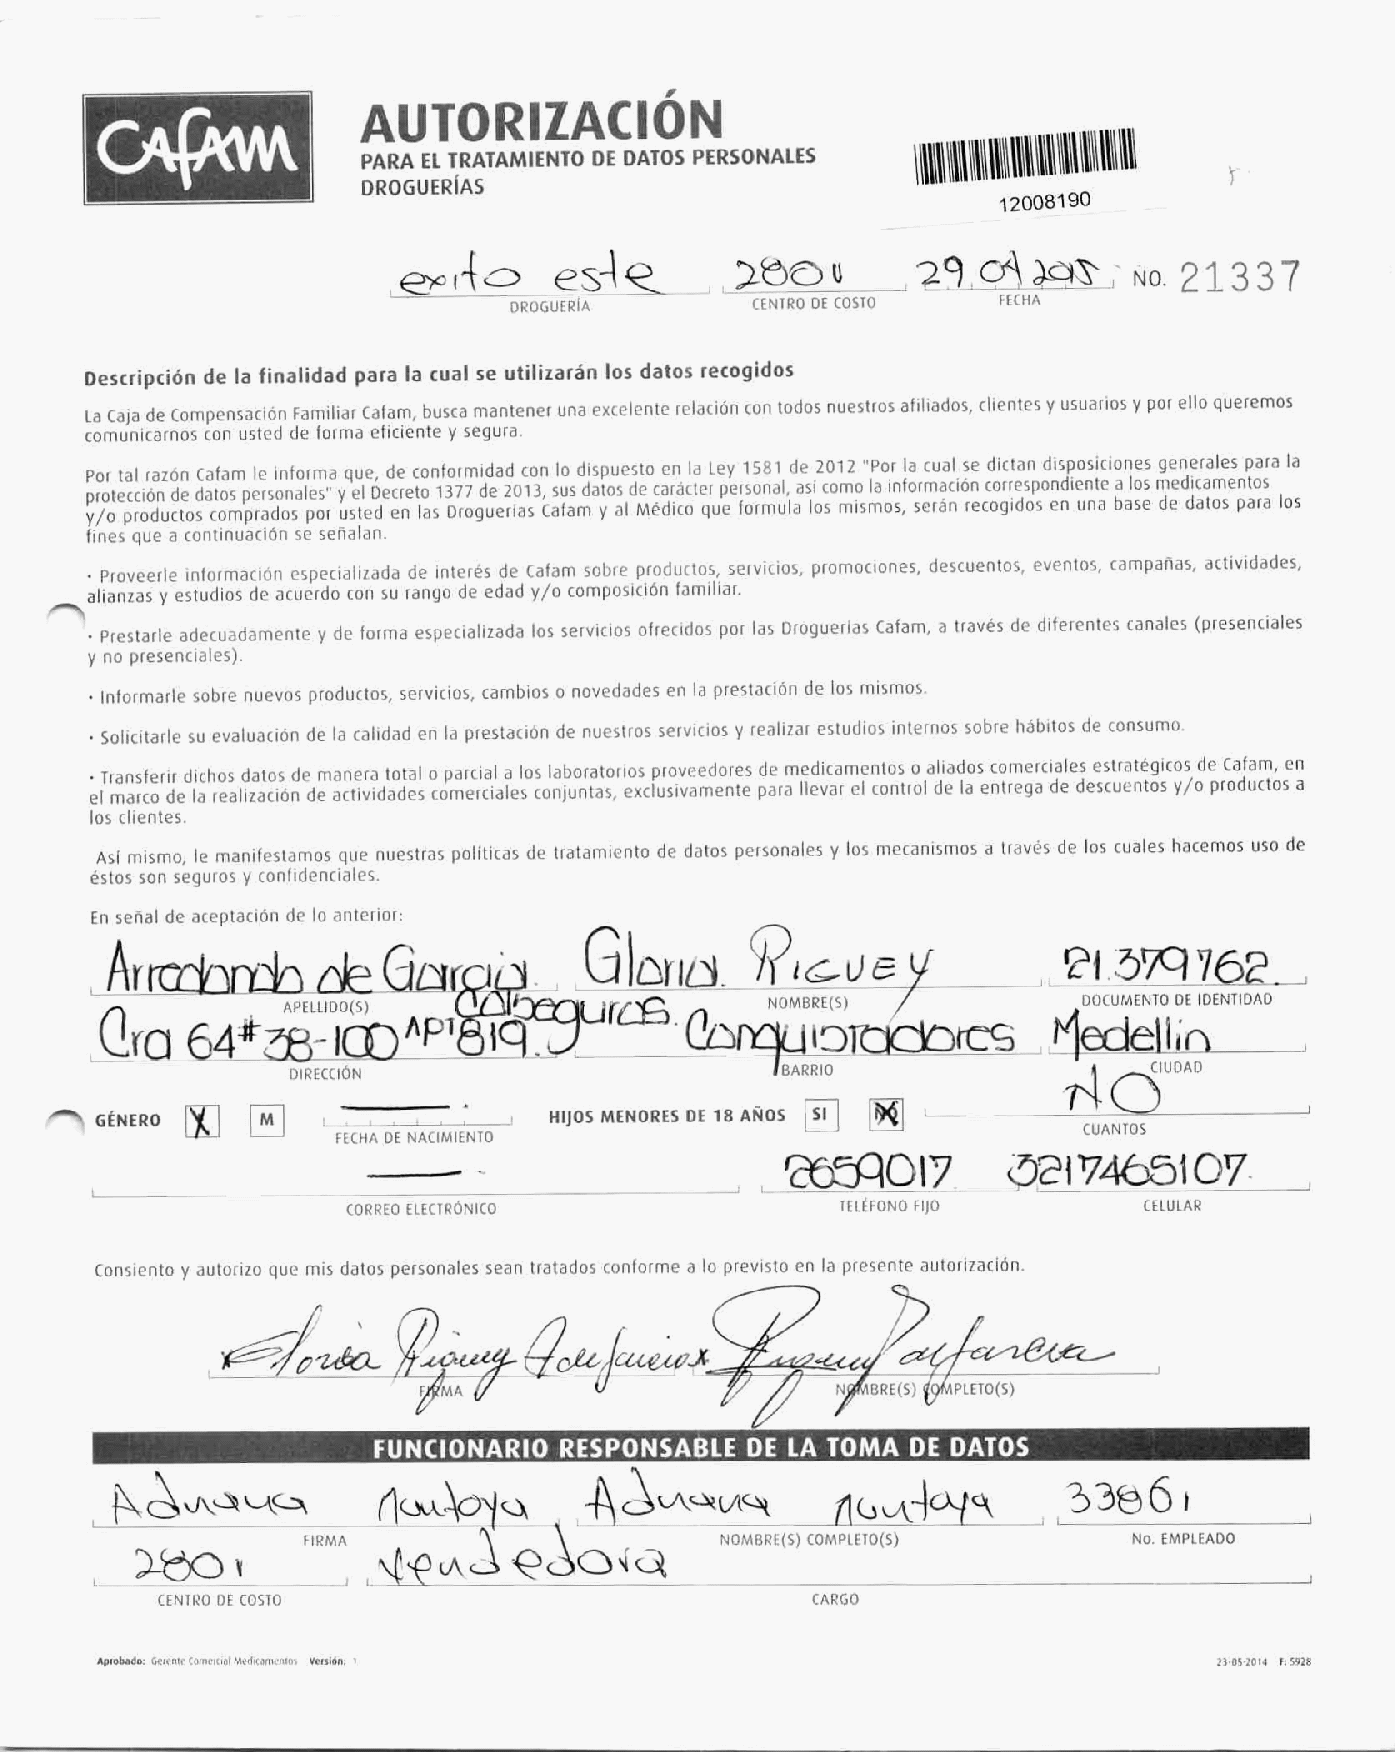 CAFAM
AUTORIZACIÓN
PARA EL TRATAMIENTO DE DATOS PERSONALES
DROGUERÍAS
12008190
exito este 2801 29 04 2015 NO. 21337
DROGUERÍA CENTRO DE COSTO FECHA
Descripción de la finalidad para la cual se utilizarán los datos recogidos
La Caja de Compensación Familiar Cafam, busca mantener una excelente relación con todos nuestros afiliados, clientes y usuarios y por ello queremos
comunicarnos con usted de forma eficiente y segura.
Por tal razón Cafam le informa que, de conformidad con lo dispuesto en la Ley 1581 de 2012 "Por la cual se dictan disposiciones generales para la
protección de datos personales" y el Decreto 1377 de 2013, sus datos de carácter personal, así como la información correspondiente a los medicamentos
y/o productos comprados por usted en las Droguerías Cafam y al Médico que formula los mismos, serán recogidos en una base de datos para los
fines que a continuación se señalan.
· Proveerle información especializada de interés de Cafam sobre productos, servicios, promociones, descuentos, eventos, campañas, actividades,
alianzas y estudios de acuerdo con su rango de edad y/o composición familiar.
· Prestarle adecuadamente y de forma especializada los servicios ofrecidos por las Droguerías Cafam, a través de diferentes canales (presenciales
y no presenciales).
· Informarle sobre nuevos productos, servicios, cambios o novedades en la prestación de los mismos.
· Solicitarle su evaluación de la calidad en la prestación de nuestros servicios y realizar estudios internos sobre hábitos de consumo.
· Transferir dichos datos de manera total o parcial a los laboratorios proveedores de medicamentos o aliados comerciales estratégicos de Cafam, en
el marco de la realización de actividades comerciales conjuntas, exclusivamente para llevar el control de la entrega de descuentos y/o productos a
los clientes.
Así mismo, le manifestamos que nuestras políticas de tratamiento de datos personales y los mecanismos a través de los cuales hacemos uso de
éstos son seguros y confidenciales.
En señal de aceptación de lo anterior:
Arredondo de Garcia. Gloria Riguey 21.379762.
APELLIDO(S) NOMBRE(S) DOCUMENTO DE IDENTIDAD
Cra 64#38-100 APT 819. Colseguros. Conquistadores Medellin
DIRECCIÓN BARRIO CIUDAD
GÉNERO X M FECHA DE NACIMIENTO HIJOS MENORES DE 18 AÑOS SI NO NO
CUANTOS
2659017 3217465107.
CORREO ELECTRÓNICO TELÉFONO FIJO CELULAR
Consiento y autorizo que mis datos personales sean tratados conforme a lo previsto en la presente autorización.
Gloria Riguey
FIRMA NOMBRE(S) COMPLETO(S)
FUNCIONARIO RESPONSABLE DE LA TOMA DE DATOS
Adriana Montoya Adriana Montoya 33861
FIRMA NOMBRE(S) COMPLETO(S) No. EMPLEADO
2801 Vendedora
CENTRO DE COSTO CARGO
Aprobado: Gerente Comercial Medicamentos Versión: 1 23-05-2014 F: 5928